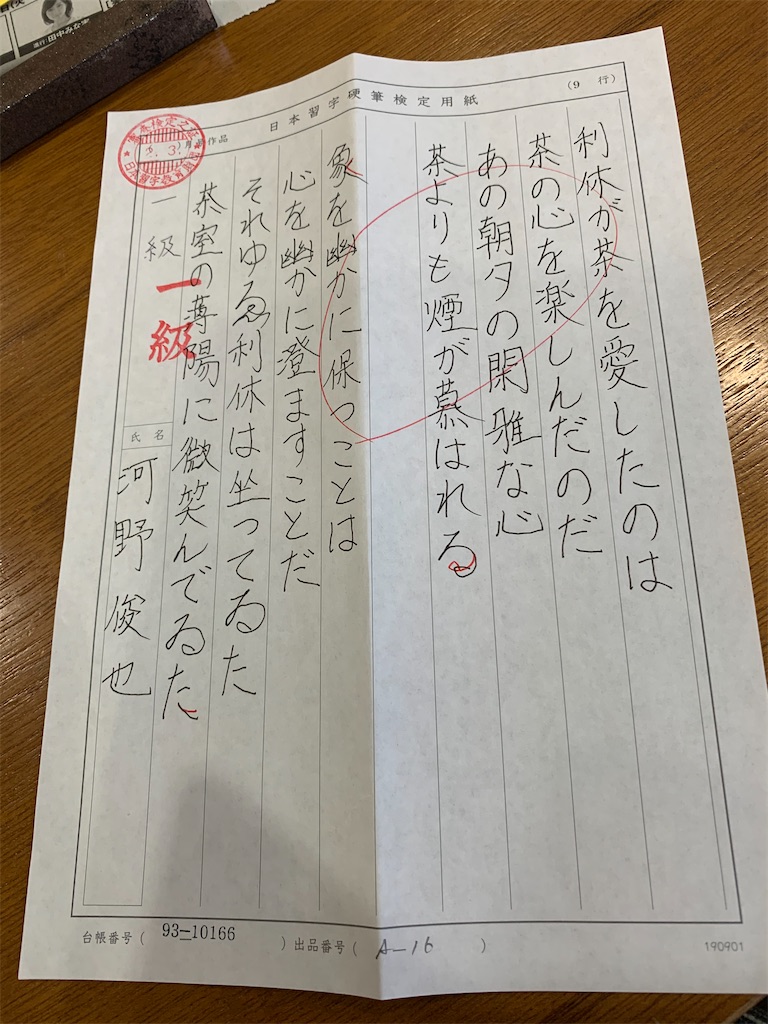 日本習字硬筆検定用紙
(9 行)
利休が茶を愛したのは
茶の心を楽しんだのだ
あの朝夕の閑雅な心
茶よりも煙が慕はれる
象を幽かに保つことは
心を幽かに澄ますことだ
それゆゑ利休は坐ってゐた
茶室の薄陽に微笑んでゐた
一級
一級
氏名
河野俊也
台帳番号( 93-10166 ) 出品番号( A-16 )
190901
進行:田中みな実